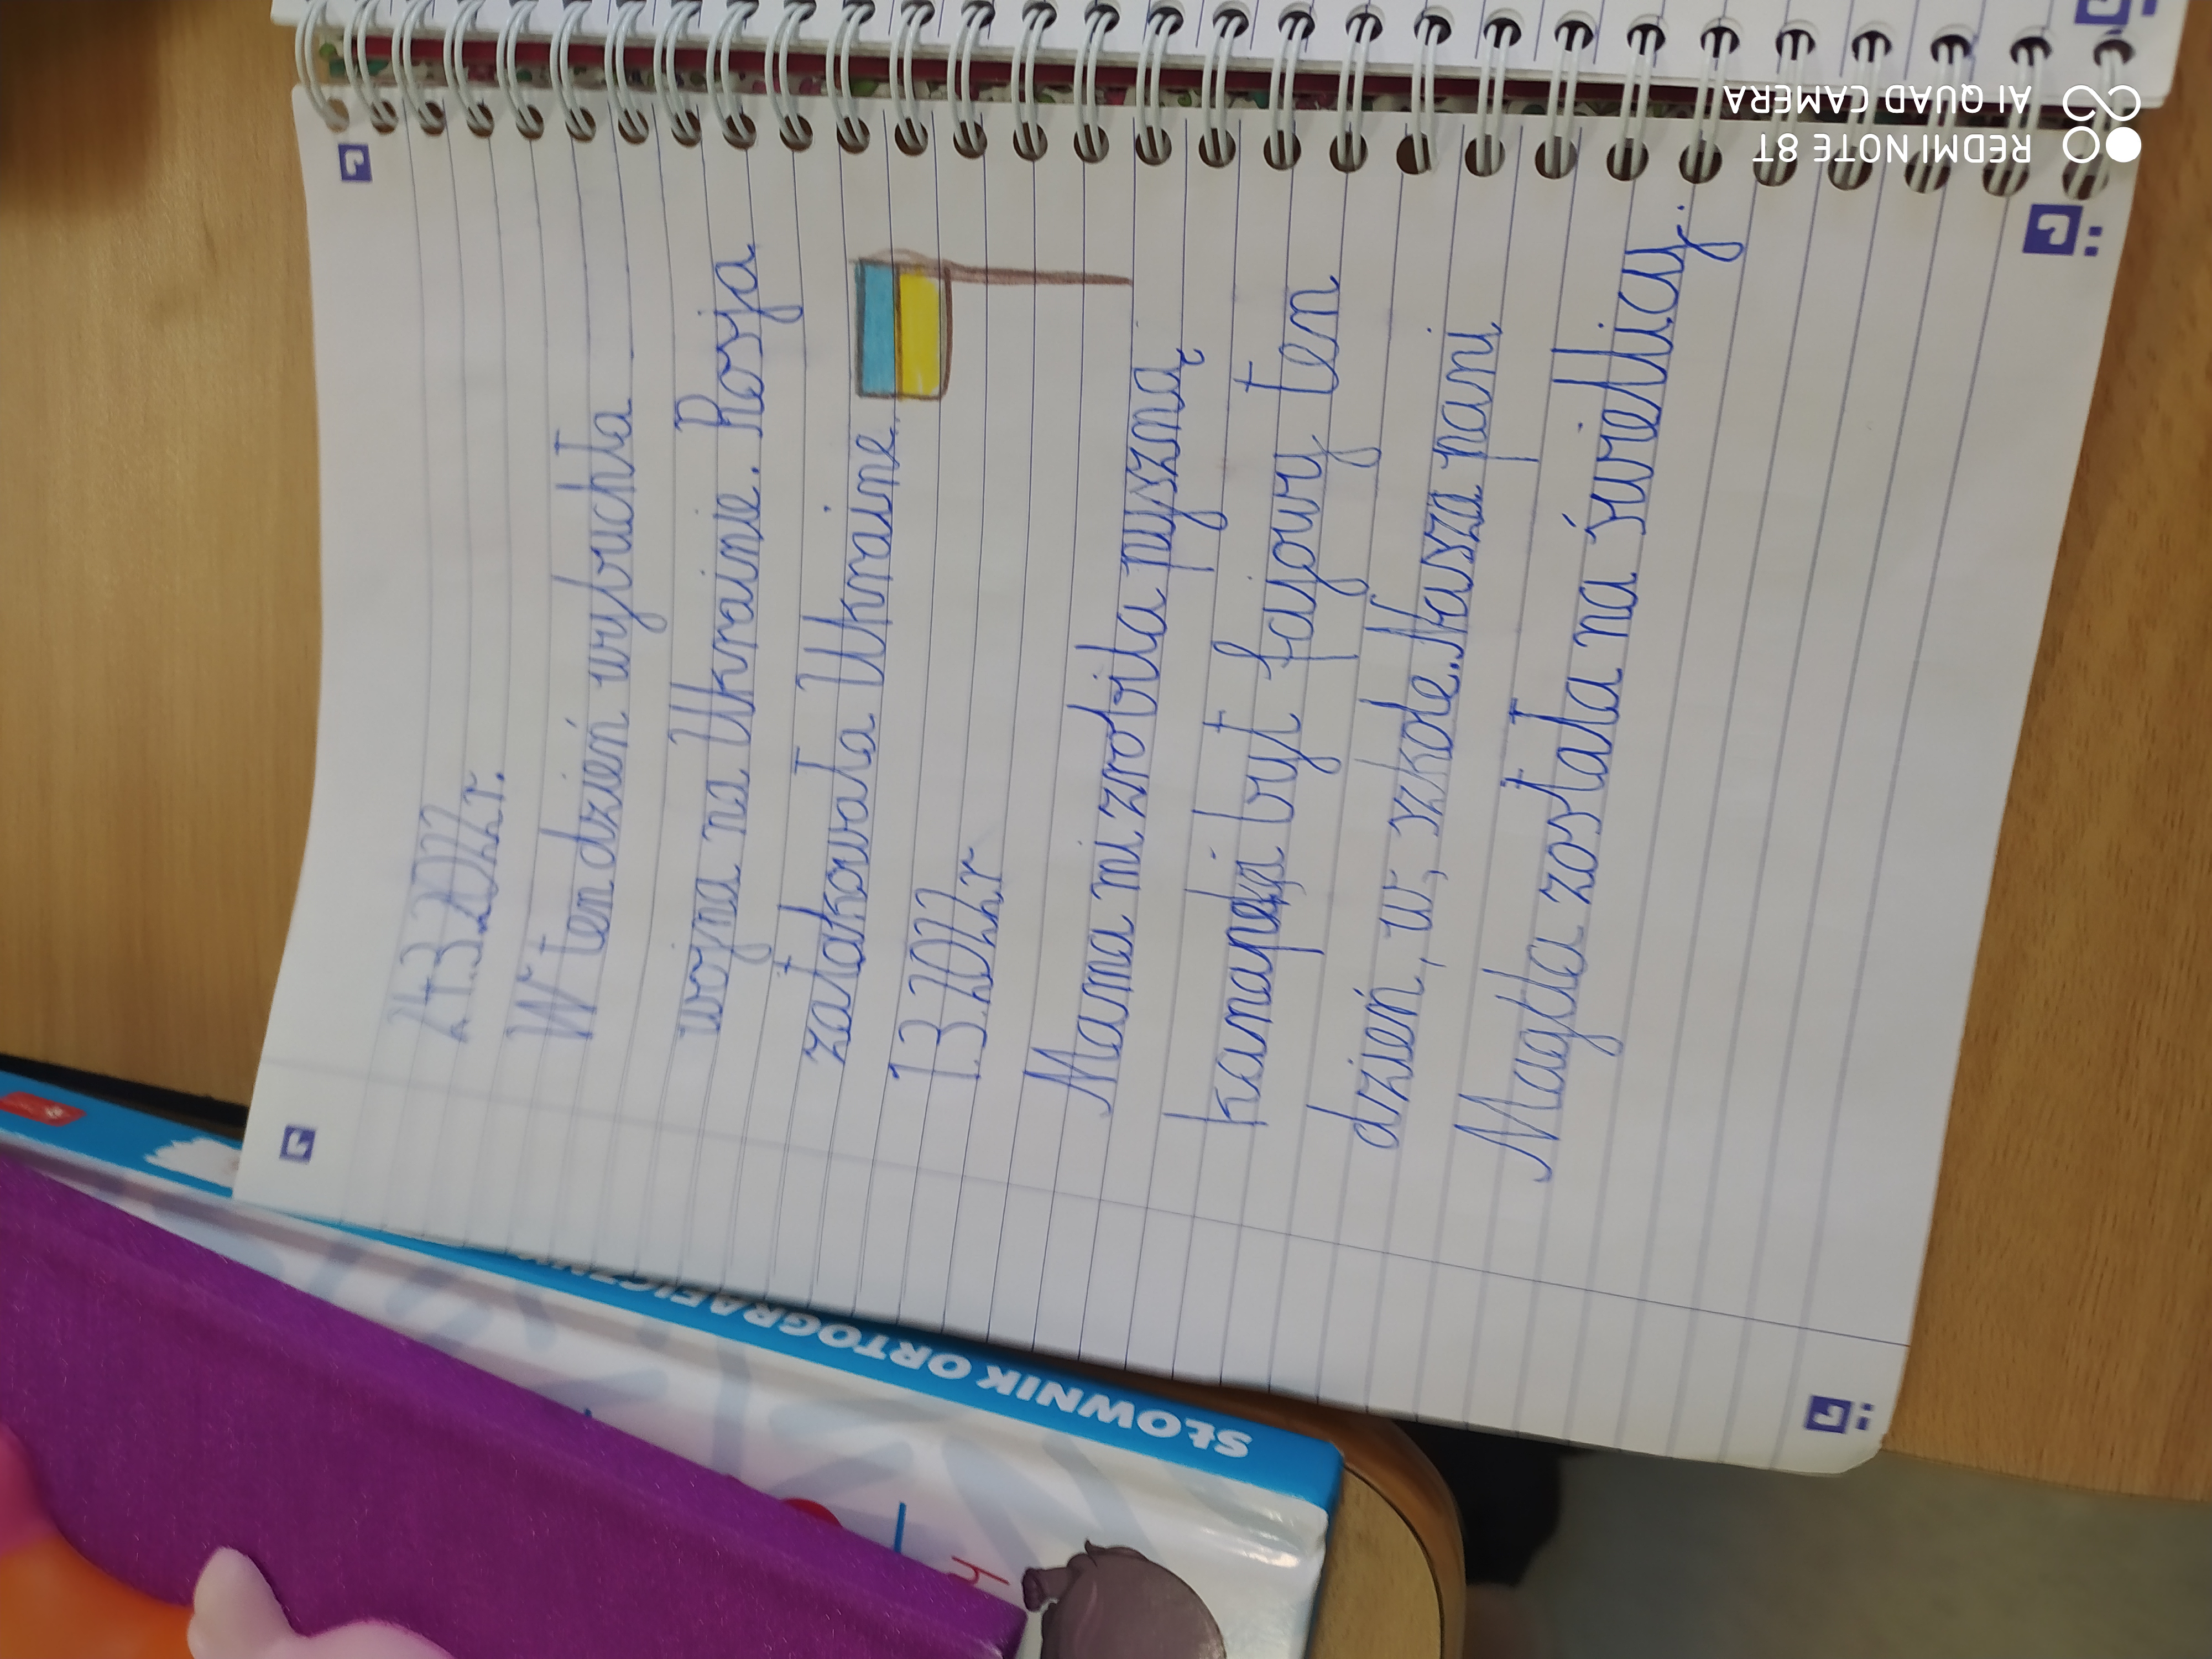 24.3.2022r.
W ten dzień wybuchła
wojna na Ukrainie. Rosja
zatakowała Ukraine.
1.3.2022r
Mama mi zrobiła pyszną
kanapki był fajowy ten
dzień, w, szkole. Nasza pani
Magda została na świetlicy.
SŁOWNIK ORTOGRAFICZNY
REDMI NOTE 8T
AI QUAD CAMERA